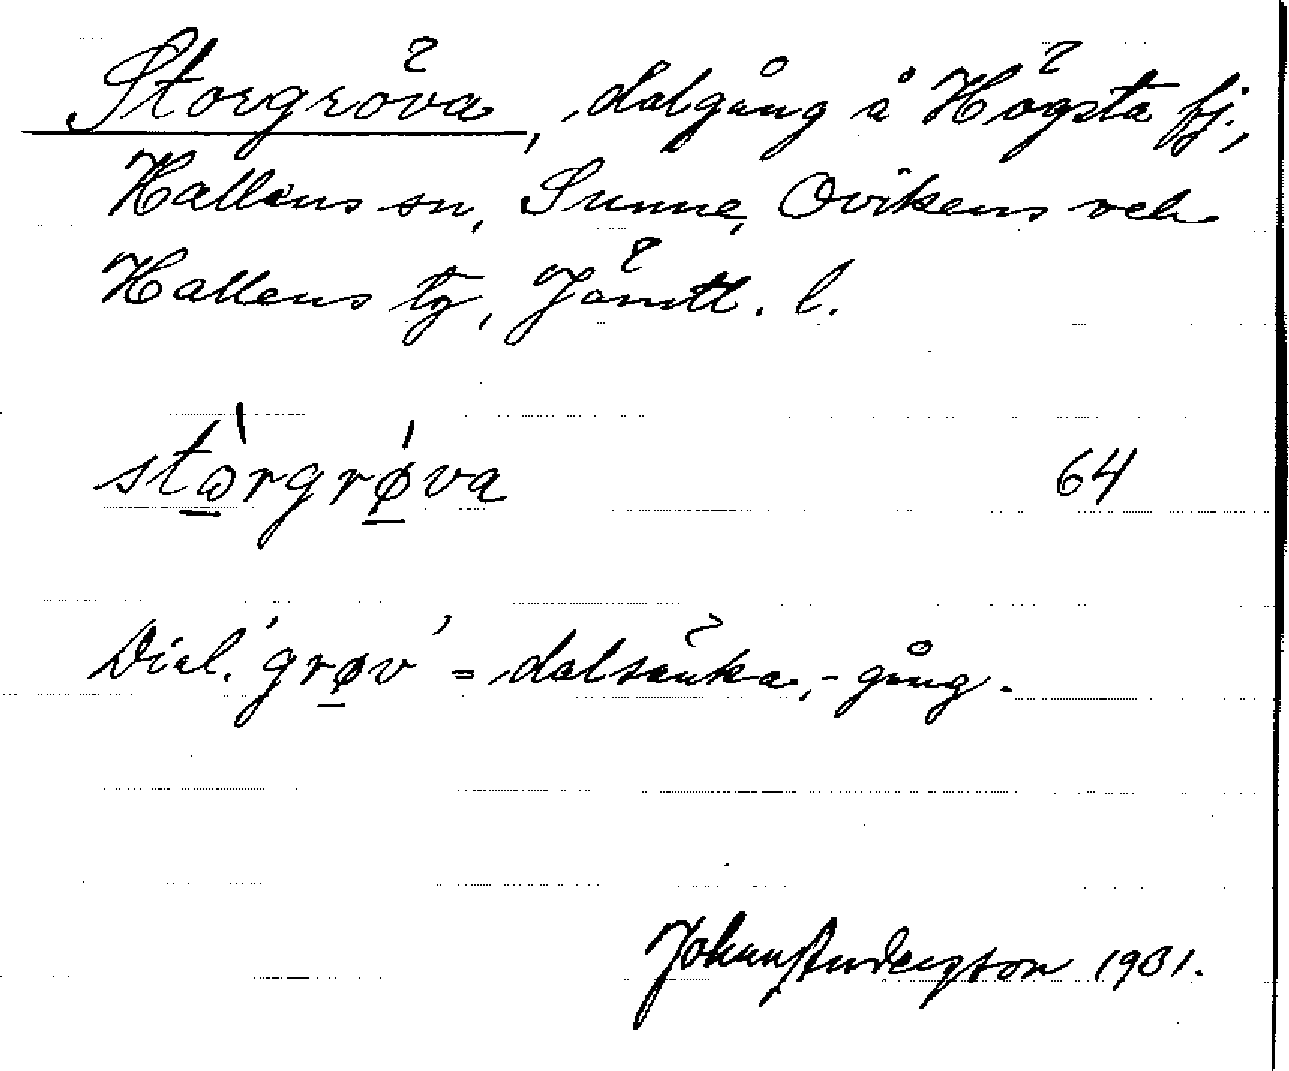 Storgröva, dalgång å Högsta fj.,
Hallens sn, Sunne, Ovikens och
Hallens tg, Jämtl. l.
stòrgrøva 64
Dial. 'grøv' = dalsänka, -gång.
Johan Anderzson 1931.